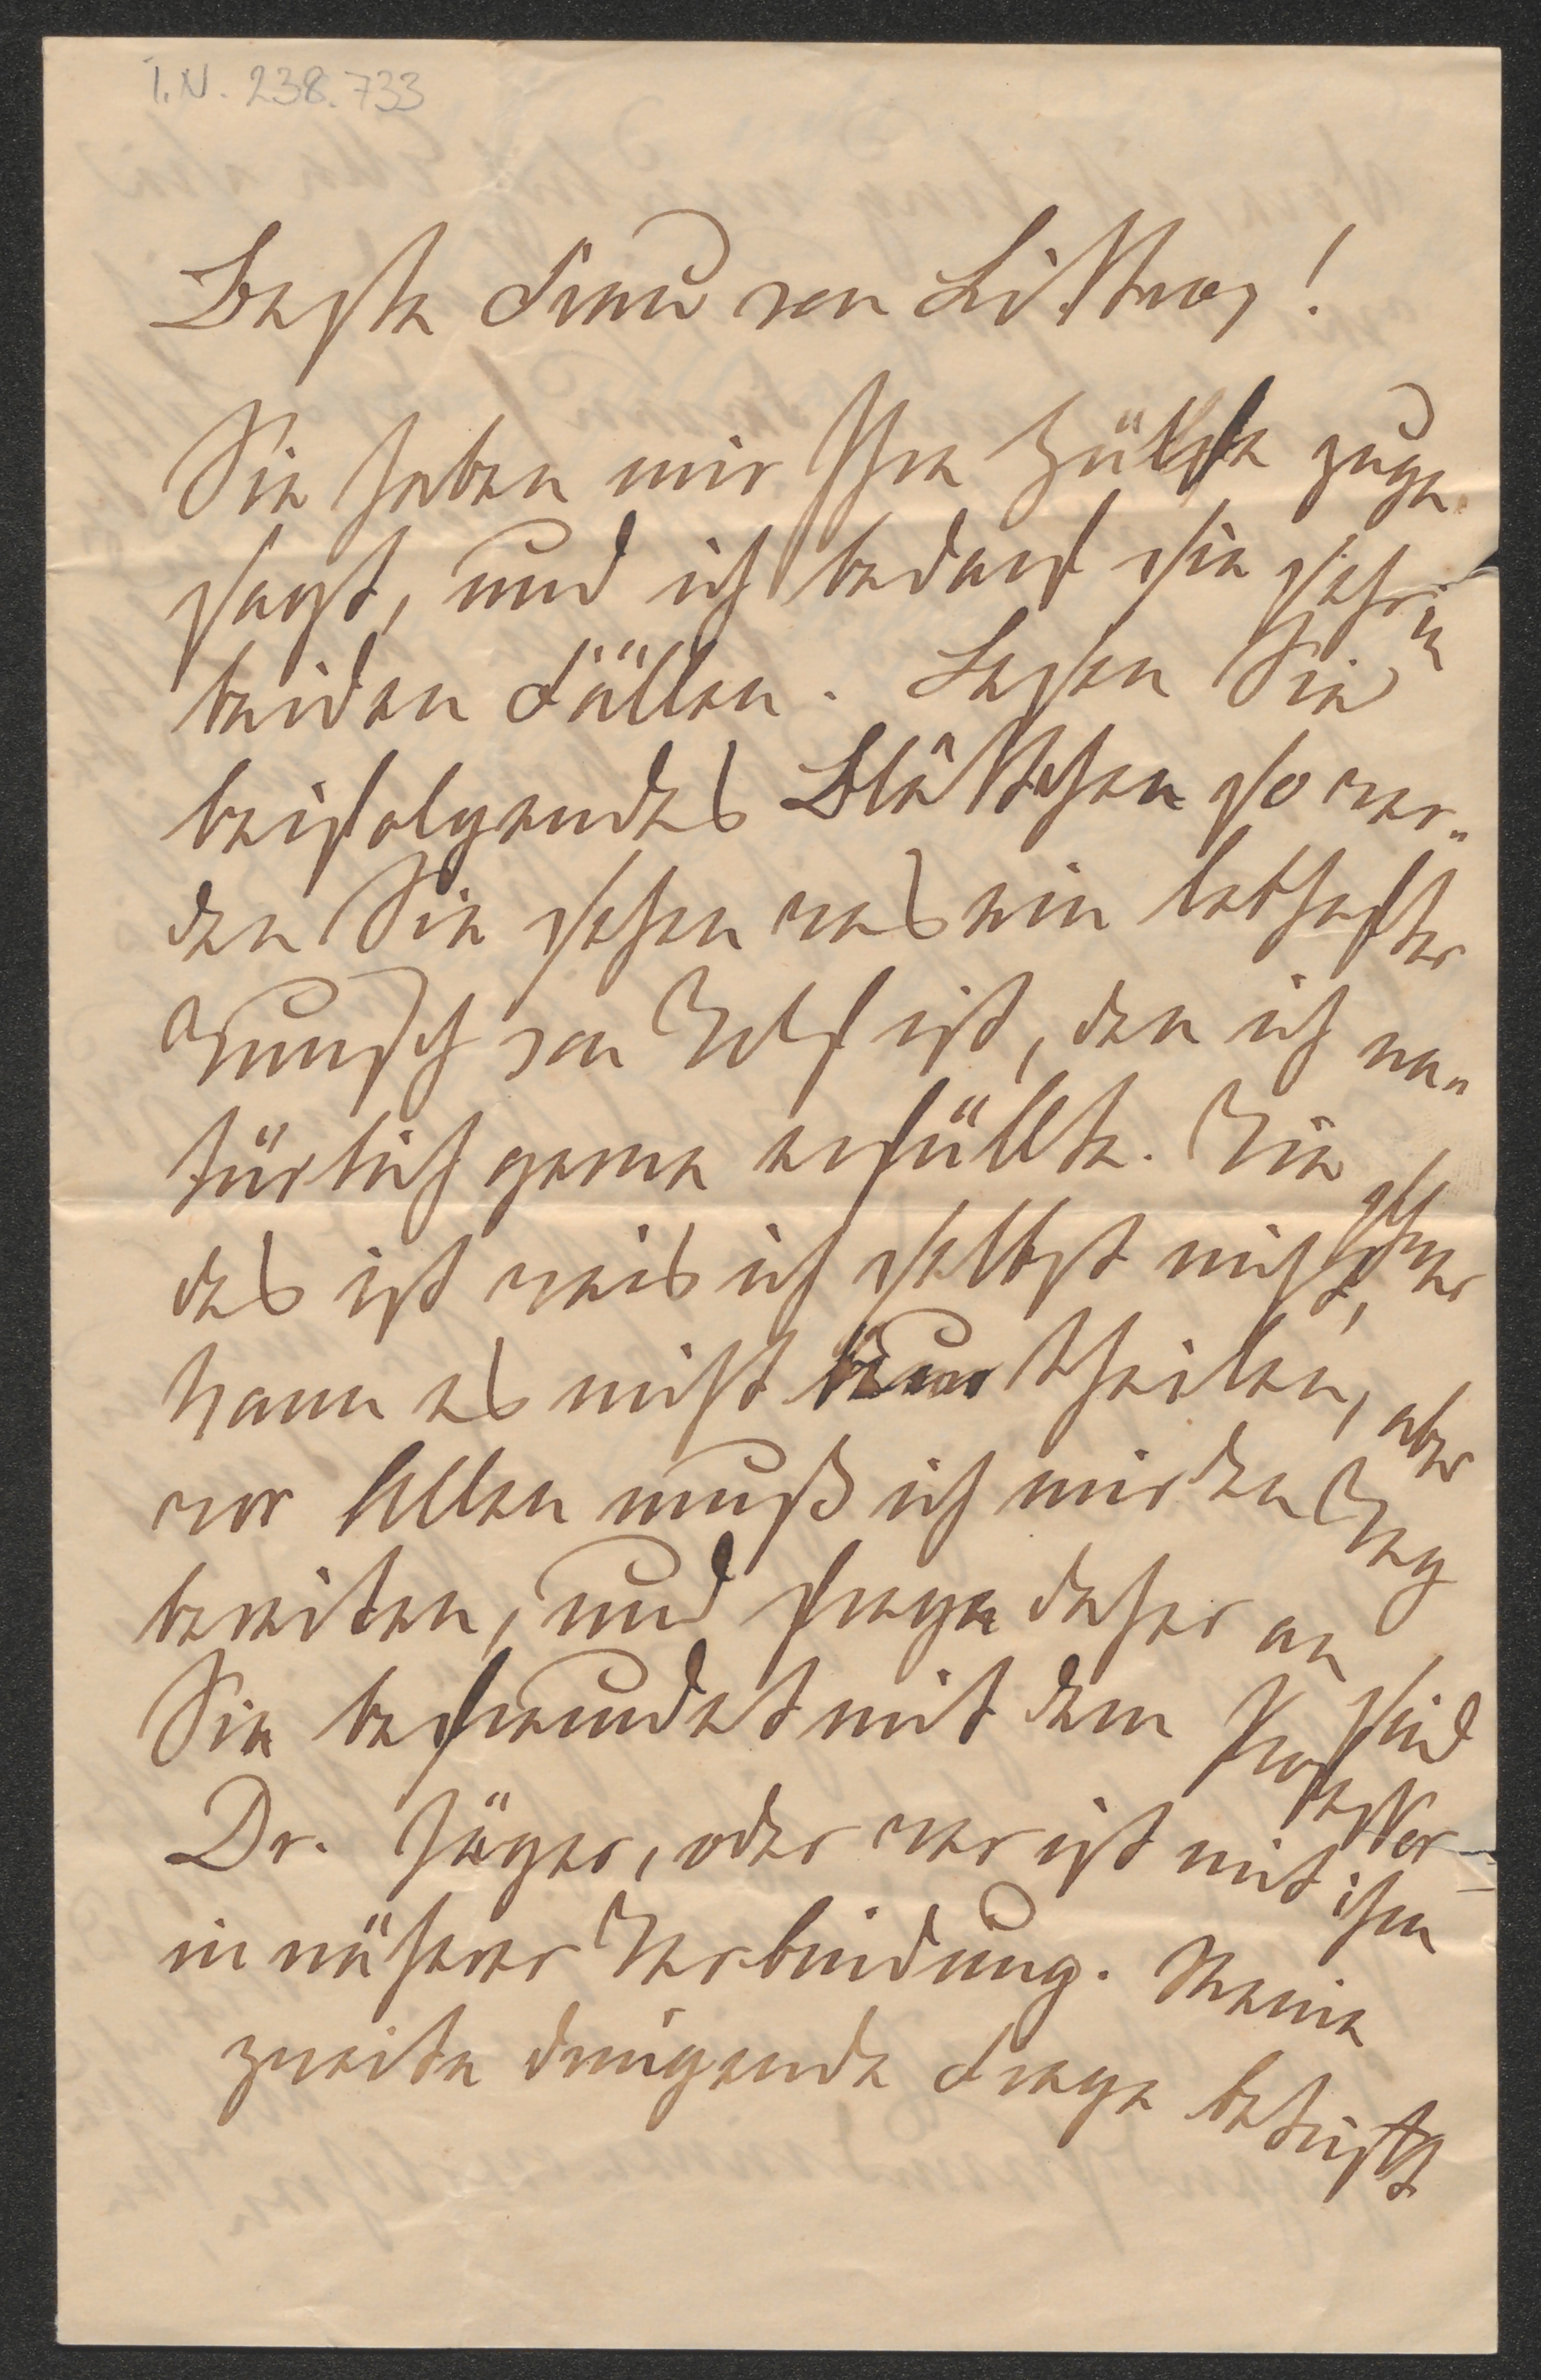 I.N. 238.733
Beste Frau von Littrow!
Sie haben mir Ihre Hülfe zuge
sagt, und ich bedarf sie sehr in
beiden Fällen. Lesen Sie
beifolgendes Blättchen so wer-
den Sie sehen was ein lebhafter
Wunsch von ist, den ich na-
türlich gerne erfüllte. Wie schwer
das ist weis ich selbst nicht,
kann es nicht beur theilen, aber
vor Allen muß ich mir den Weg
bereiten, und frage daher an sind
Sie befreundet mit dem Professor
Dr. Jäger, oder wer ist mit ihm
in näherer Verbindung. Meine
zweite dringende Frage betrifft